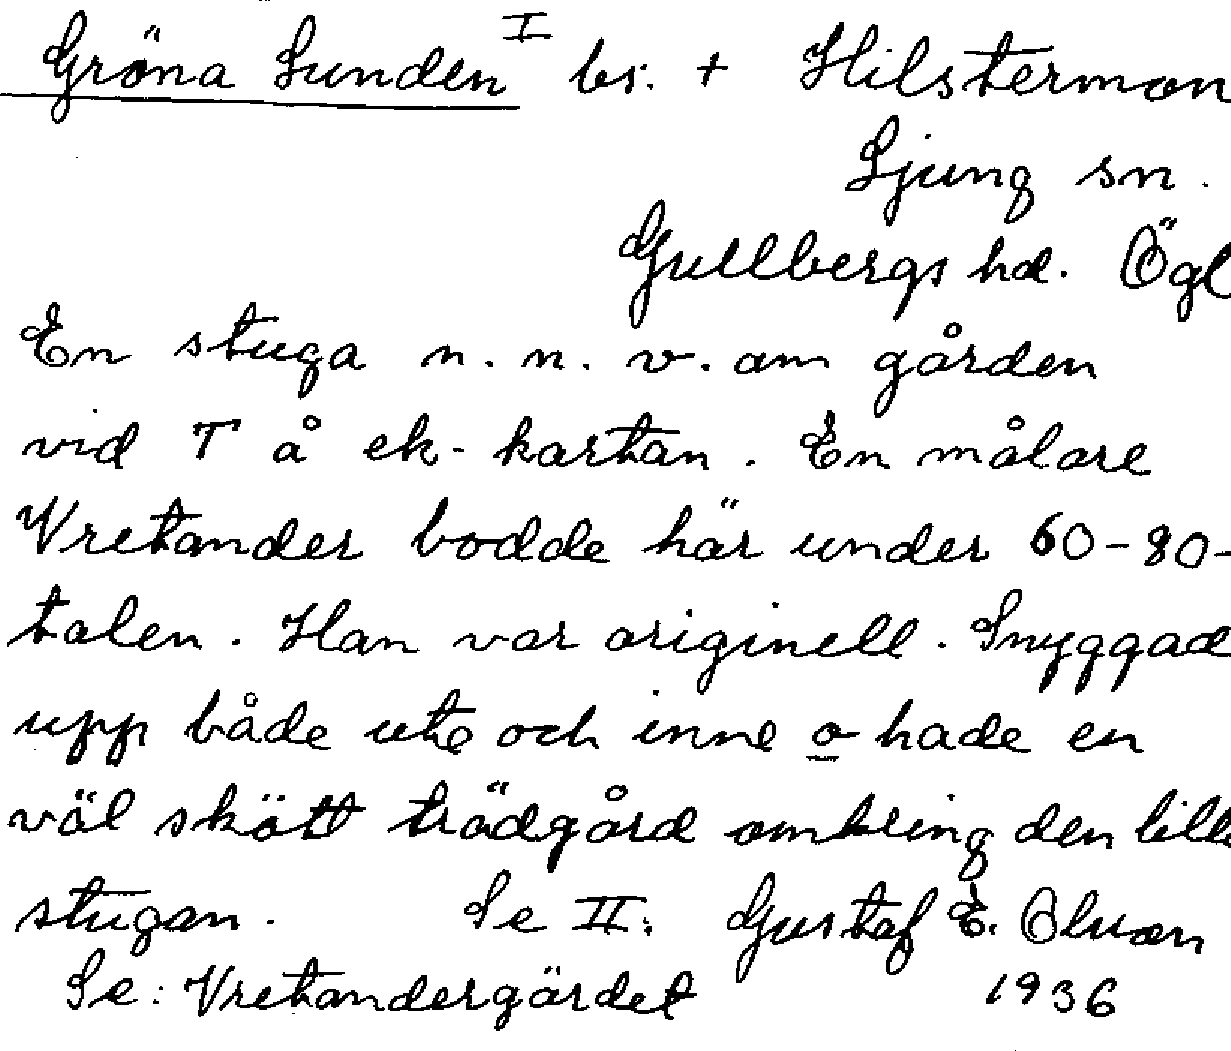 Gröna Lunden I bs. + Hilsterman
Ljung sn.
Gullbergs hd. Ögl
En stuga n. n. v. om gården
vid T å ek-kartan. En målare
Vretander bodde här under 60-80-
talen. Han var originell. Snyggad
upp både ute och inne o hade en
väl skött trädgård omkring den lill
stugan. Se II: Gustaf E.
Se: Vretandergärdet 1936